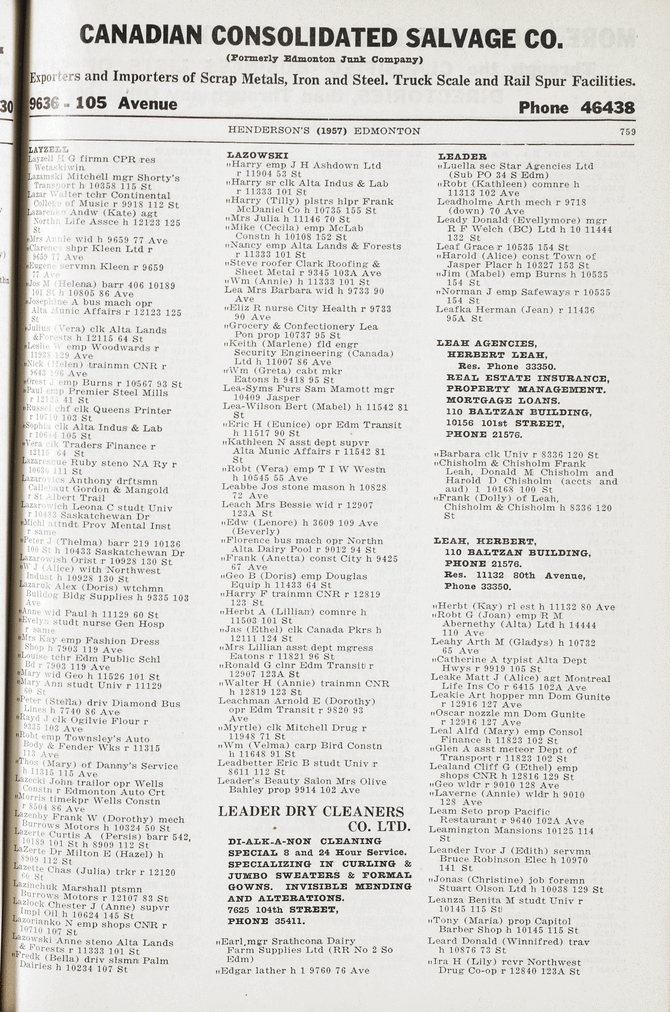 CANADIAN CONSOLIDATED SALVAGE CO.
(Formerly Edmonton Junk Company)
Exporters and Importers of Scrap Metals, Iron and Steel. Truck Scale and Rail Spur Facilities.
9636 - 105 Avenue Phone 46438
HENDERSON'S (1957) EDMONTON 759
LAYZELL
Layzell H G firmn CPR res
Wetaskiwin
Lazameki Mitchell mgr Shorty's
Transport h 10358 115 St
Lazar Walter tchr Continental
College of Music r 9918 112 St
Lazarenko Andw (Kate) agt
Northn Life Assce h 12123 125
St
„Mrs Annie wid h 9659 77 Ave
„Clarence shpr Kleen Ltd r
9659 77 Ave
„Eugene servmn Kleen r 9659
77 Ave
„Jos M (Helena) barr 406 10189
101 St h 10805 86 Ave
„Josephine A bus mach opr
Alta Munic Affairs r 12123 125
St
„Julius (Vera) clk Alta Lands
&Forests h 12115 64 St
„Leslie W emp Woodwards r
11938 129 Ave
„Nick (Helen) trainmn CNR r
9642 106 Ave
„Orest J emp Burns r 10567 93 St
„Paul emp Premier Steel Mills
r 12125 41 St
„Russel chf clk Queens Printer
r 103 St
„Sophia clk Alta Indus & Lab
r 10664 105 St
„Vera clk Traders Finance r
12115 64 St
Lazarescue Ruby steno NA Ry r
10635 111 St
Lazarovics Anthony drftsmn
Callebaut Gordon & Mangold
r St Albert Trail
Lazarowich Leona C studt Univ
r 10433 Saskatchewan Dr
„Michl attndt Prov Mental Inst
r same
„Peter J (Thelma) barr 219 10136
100 St h 10433 Saskatchewan Dr
Lazarowish Orist r 10928 130 St
„W J (Alice) with Northwest
Indust h 10928 130 St
Lazaruk Alex (Doris) wtchmn
Bulldog Bldg Supplies h 9335 103
Ave
„Anne wid Paul h 11129 60 St
„Evelyn studt nurse Gen Hosp
r same
„Mrs Kay emp Fashion Dress
Shop h 7903 119 Ave
„Louise tchr Edm Public Schl
Bd r 7903 119 Ave
„Mary wid Geo h 11526 101 St
„Mary Ann studt Univ r 11129
60 St
„Peter (Stella) driv Diamond Bus
Lines h 7740 86 Ave
„Rayd J clk Ogilvie Flour r
9335 103 Ave
„Robt emp Townsley's Auto
Body & Fender Wks r 11315
115 Ave
„Thos (Mary) of Danny's Service
h 11315 115 Ave
Lazecki John trailor opr Wells
Constn r Edmonton Auto Crt
„Morris timekpr Wells Constn
r 8504 86 Ave
Lazenby Frank W (Dorothy) mech
Burrows Motors h 10324 50 St
Lazerte Curtis A (Persis) barr 542,
10189 101 St h 8909 112 St
LaZerte Dr Milton E (Hazel) h
8909 112 St
Lazette Chas (Julia) trkr r 12120
60 St
Lazinchuk Marshall ptsmn
Burrows Motors r 12107 83 St
Lazlock Chester J (Anne) supvr
Impl Oil h 10624 145 St
Lazorianko N emp shops CNR r
10710 107 St
Lazowski Anne steno Alta Lands
& Forests r 11333 101 St
„Fredk (Bella) driv slsmn Palm
Dairies h 10234 107 St
LAZOWSKI
„Harry emp J H Ashdown Ltd
r 11904 53 St
„Harry sr clk Alta Indus & Lab
r 11333 101 St
„Harry (Tilly) plstrs hlpr Frank
McDaniel Co h 10735 155 St
„Mrs Julia h 11146 70 St
„Mike (Cecila) emp McLab
Constn h 10108 152 St
„Nancy emp Alta Lands & Forests
r 11333 101 St
„Steve roofer Clark Roofing &
Sheet Metal r 9345 103A Ave
„Wm (Annie) h 11333 101 St
Lea Mrs Barbara wid h 9733 90
Ave
„Eliz R nurse City Health r 9733
90 Ave
„Grocery & Confectionery Lea
Pon prop 10737 95 St
„Keith (Marlene) fld engr
Security Engineering (Canada)
Ltd h 11007 86 Ave
„Wm (Greta) cabt mkr
Eatons h 9418 95 St
Lea-Syms Furs Sam Mamott mgr
10409 Jasper
Lea-Wilson Bert (Mabel) h 11542 81
St
„Eric H (Eunice) opr Edm Transit
h 11517 90 St
„Kathleen N asst dept supvr
Alta Munic Affairs r 11542 81
St
„Robt (Vera) emp T I W Westn
h 10545 55 Ave
Leabbe Jos stone mason h 10828
72 Ave
Leach Mrs Bessie wid r 12907
123A St
„Edw (Lenore) h 3609 109 Ave
(Beverly)
„Florence bus mach opr Northn
Alta Dairy Pool r 9012 94 St
„Frank (Anetta) const City h 9425
67 Ave
„Geo B (Doris) emp Douglas
Equip h 11433 64 St
„Harry F trainmn CNR r 12819
123 St
„Herbt A (Lillian) comnre h
11503 101 St
„Jas (Ethel) clk Canada Pkrs h
12111 124 St
„Mrs Lillian asst dept mgress
Eatons r 11821 96 St
„Ronald G clnr Edm Transit r
12907 123A St
„Walter H (Annie) trainmn CNR
h 12819 123 St
Leachman Arnold E (Dorothy)
opr Edm Transit r 9820 93
Ave
„(Myrtle) clk Mitchell Drug r
11948 71 St
„Wm (Velma) carp Bird Constn
h 11148 91 St
Leadbetter Eric B studt Univ r
8611 112 St
Leader's Beauty Salon Mrs Olive
Bahley prop 9914 102 Ave
LEADER DRY CLEANERS
CO. LTD.
DI-ALK-A-NON CLEANING
SPECIAL 8 and 24 Hour Service.
SPECIALIZING IN CURLING &
JUMBO SWEATERS & FORMAL
GOWNS. INVISIBLE MENDING
AND ALTERATIONS.
7625 104th STREET,
PHONE 35411.
„Earl mgr Srathcona Dairy
Farm Supplies Ltd (RR No 2 So
Edm)
„Edgar lather h 1 9760 76 Ave
LEADER
„Luella sec Star Agencies Ltd
(Sub PO 34 S Edm)
„Robt (Kathleen) comnre h
11313 102 Ave
Leadholme Arth mech r 9718
(down) 70 Ave
Leady Donald (Evellymore) mgr
R F Welch (BC) Ltd h 10 11444
132 St
Leaf Grace r 10535 154 St
„Harold (Alice) const Town of
Jasper Placr h 10327 153 St
„Jim (Mabel) emp Burns h 10535
154 St
„Norman J emp Safeways r 10535
154 St
Leafka Herman (Jean) r 11436
95A St
LEAH AGENCIES,
HERBERT LEAH,
Res. Phone 33350.
REAL ESTATE INSURANCE,
PROPERTY MANAGEMENT.
MORTGAGE LOANS.
110 BALTZAN BUILDING,
10156 101st STREET,
PHONE 21576.
„Barbara clk Univ r 8336 120 St
„Chisholm & Chisholm Frank
Leah, Donald M Chisholm and
Harold D Chisholm (accts and
aud) 1 10168 100 St
„Frank (Dolly) of Leah,
Chisholm & Chisholm h 8336 120
St
LEAH, HERBERT,
110 BALTZAN BUILDING,
PHONE 21576.
Res. 11132 80th Avenue,
Phone 33350.
„Herbt (Kay) rl est h 11132 80 Ave
„Robt G (Joan) emp R M
Abernethy (Alta) Ltd h 14444
110 Ave
Leahy Arth M (Gladys) h 10732
65 Ave
„Catherine A typist Alta Dept
Hwys r 9919 105 St
Leake Matt J (Alice) agt Montreal
Life Ins Co r 6415 102A Ave
Leakie Art hopper mn Dom Gunite
r 12916 127 Ave
„Oscar nozzle mn Dom Gunite
r 12916 127 Ave
Leal Alfd (Mary) emp Consol
Finance h 11823 102 St
„Glen A asst meteor Dept of
Transport r 11823 102 St
Lealand Cliff G (Ethel) emp
shops CNR h 12816 129 St
„Geo wldr r 9010 128 Ave
„Laverne (Annie) wldr h 9010
128 Ave
Leam Seto prop Pacific
Restaurant r 9640 102A Ave
Leamington Mansions 10125 114
St
Leander Ivor J (Edith) servmn
Bruce Robinson Elec h 10970
141 St
„Jonas (Christine) job foremn
Stuart Olson Ltd h 10038 129 St
Leanza Benita M studt Univ r
10145 115 St
„Tony (Maria) prop Capitol
Barber Shop h 10145 115 St
Leard Donald (Winnifred) trav
h 10876 73 St
„Ira H (Lily) rcvr Northwest
Drug Co-op r 12840 123A St